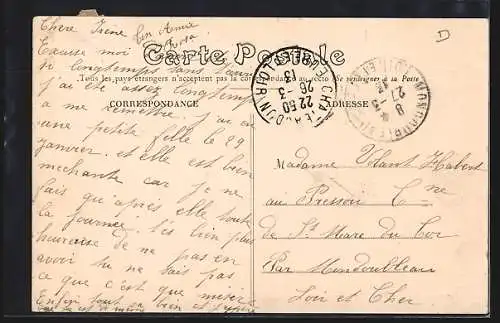 Chere Irène
Ton Amie
Carte Postale
Excuse moi
si longtemps sans
Tous les pays étrangers n'acceptent pas la au recto Se renseigner à la Poste
j'ai été assez longtemps
CORRESPONDANCE
ADRESSE
a me remettre. j'ai eu
une petite fille le 29
janvier. et elle est bien
mechante car je ne
fais qu'apres elle toute
la journée. tes bien plus
heureuse de ne pas en
avoir tu ne sais pas
ce que c'est que
Enfin tout en bien et
CHATEAUDUN
22 50
26 -3
13
8
27 -3
Madame Volant Habert
au Pressoir Cne
de St Mare du Cor
Par Mondoubleau
Loir et Cher
D